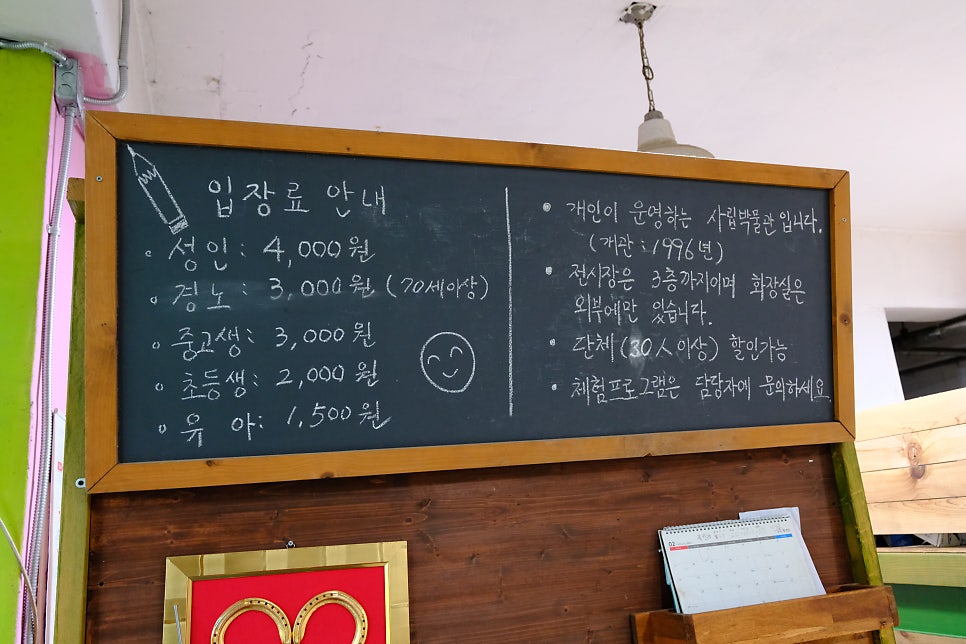 입장료 안내
성인: 4,000원
경노: 3,000원 (70세이상)
중고생: 3,000원
초등생: 2,000원
유 아: 1,500원
개인이 운영하는 사립박물관입니다.
(개관:1996년)
전시장은 3층까지이며 화장실은
외부에만 있습니다.
단체(30人이상) 할인가능
체험프로그램은 담당자에 문의하세요.
02